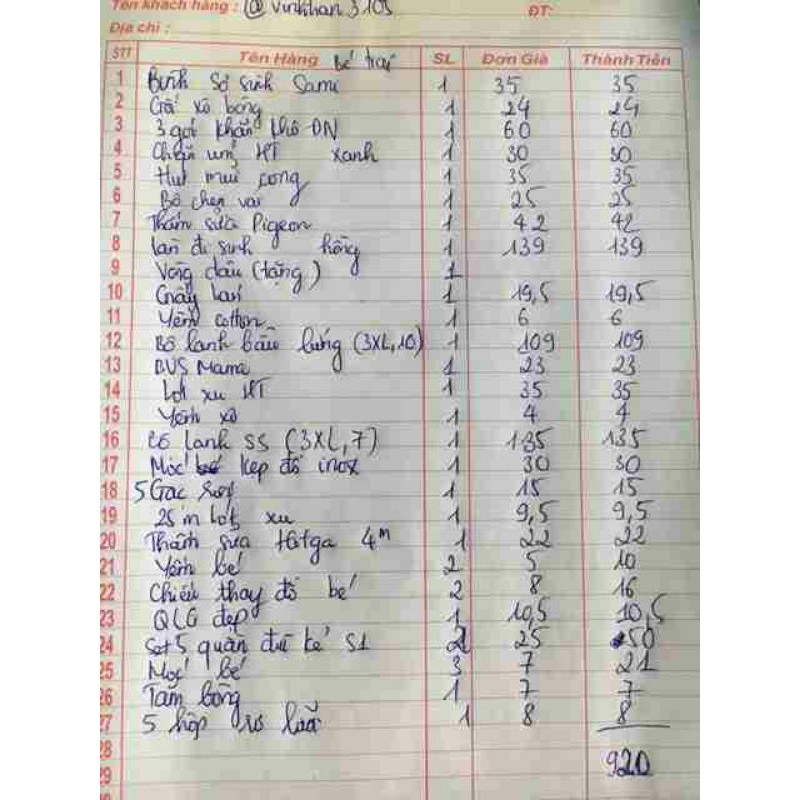 Tên khách hàng : @ vinhthan 3103 ĐT:
Địa chỉ :
STT Tên Hàng Bé trai SL Đơn Giá Thành Tiền
1 Bình Sơ sinh Sami 1 35 35
2 xô bông 1 24 24
3 3 gói khăn khô ĐN 1 60 60
4 HT xanh 1 30 30
5 Hút mũi cong 1 35 35
6 Bô chẹn vai 1 25 25
7 Thấm sữa Pigeon 1 42 42
8 làn đi sinh hồng 1 139 139
9 Vòng dâu (tặng) 1
10 Giấy 1 19,5 19,5
11 Yếm cotton 1 6 6
12 Bô lanh bâu lưng (3XL,10) 1 109 109
13 BVS Mama 1 23 23
14 Lót xu HT 1 35 35
15 Yếm xô 1 4 4
16 lanh SS (3XL,7) 1 135 135
17 Móc kẹp đồ inox 1 30 30
18 5 Gạc 1 15 15
19 25 m lót xu 1 9,5 9,5
20 Thấm sữa 4m 1 22 22
21 Yếm bé 2 5 10
22 Chiếu thay đồ bé 2 8 16
23 QLG đẹp 1 10,5 10,5
24 Set 5 quần S1 2 25 50
25 Móc bé 3 7 21
26 Tăm bông 1 7 7
27 5 hộp rơ lưỡi 1 8 8
28 920
29